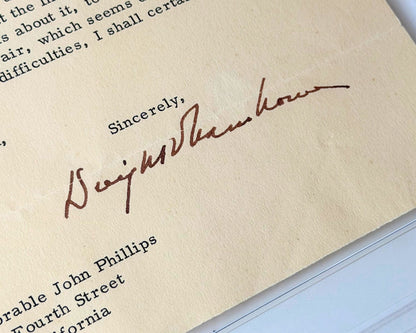 t the in
s about it, to
air, which seems
difficulties, I shall certai
Sincerely,
Dwight D Eisenhower
orable John Phillips
Fourth Street
lifornia